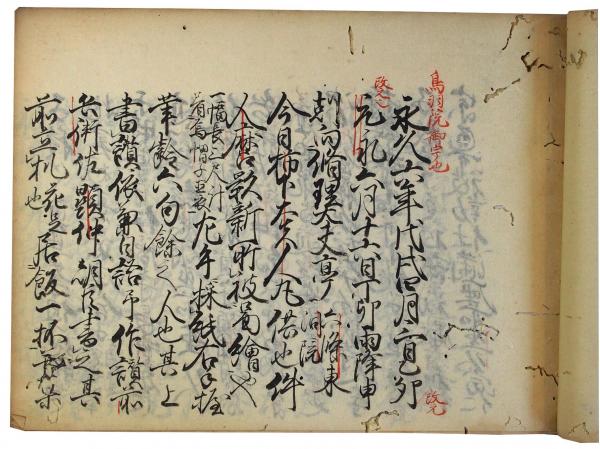 鳥羽院御宇也
永久六年戊戌四月三日己卯
改元
元永六月十六日丁卯雨降申
刻向脩理大夫亭六條東
洞院
今日柿下大夫人丸供也件
人麿影新所被圖繪也
一幅長三尺許
着烏帽子直衣左手採紙右手握
筆齡六旬餘之人也其上
書讃依兼日語予作讃前
兵衛佐顯仲朝臣書之其
前立机花足居飯一坏菓
也